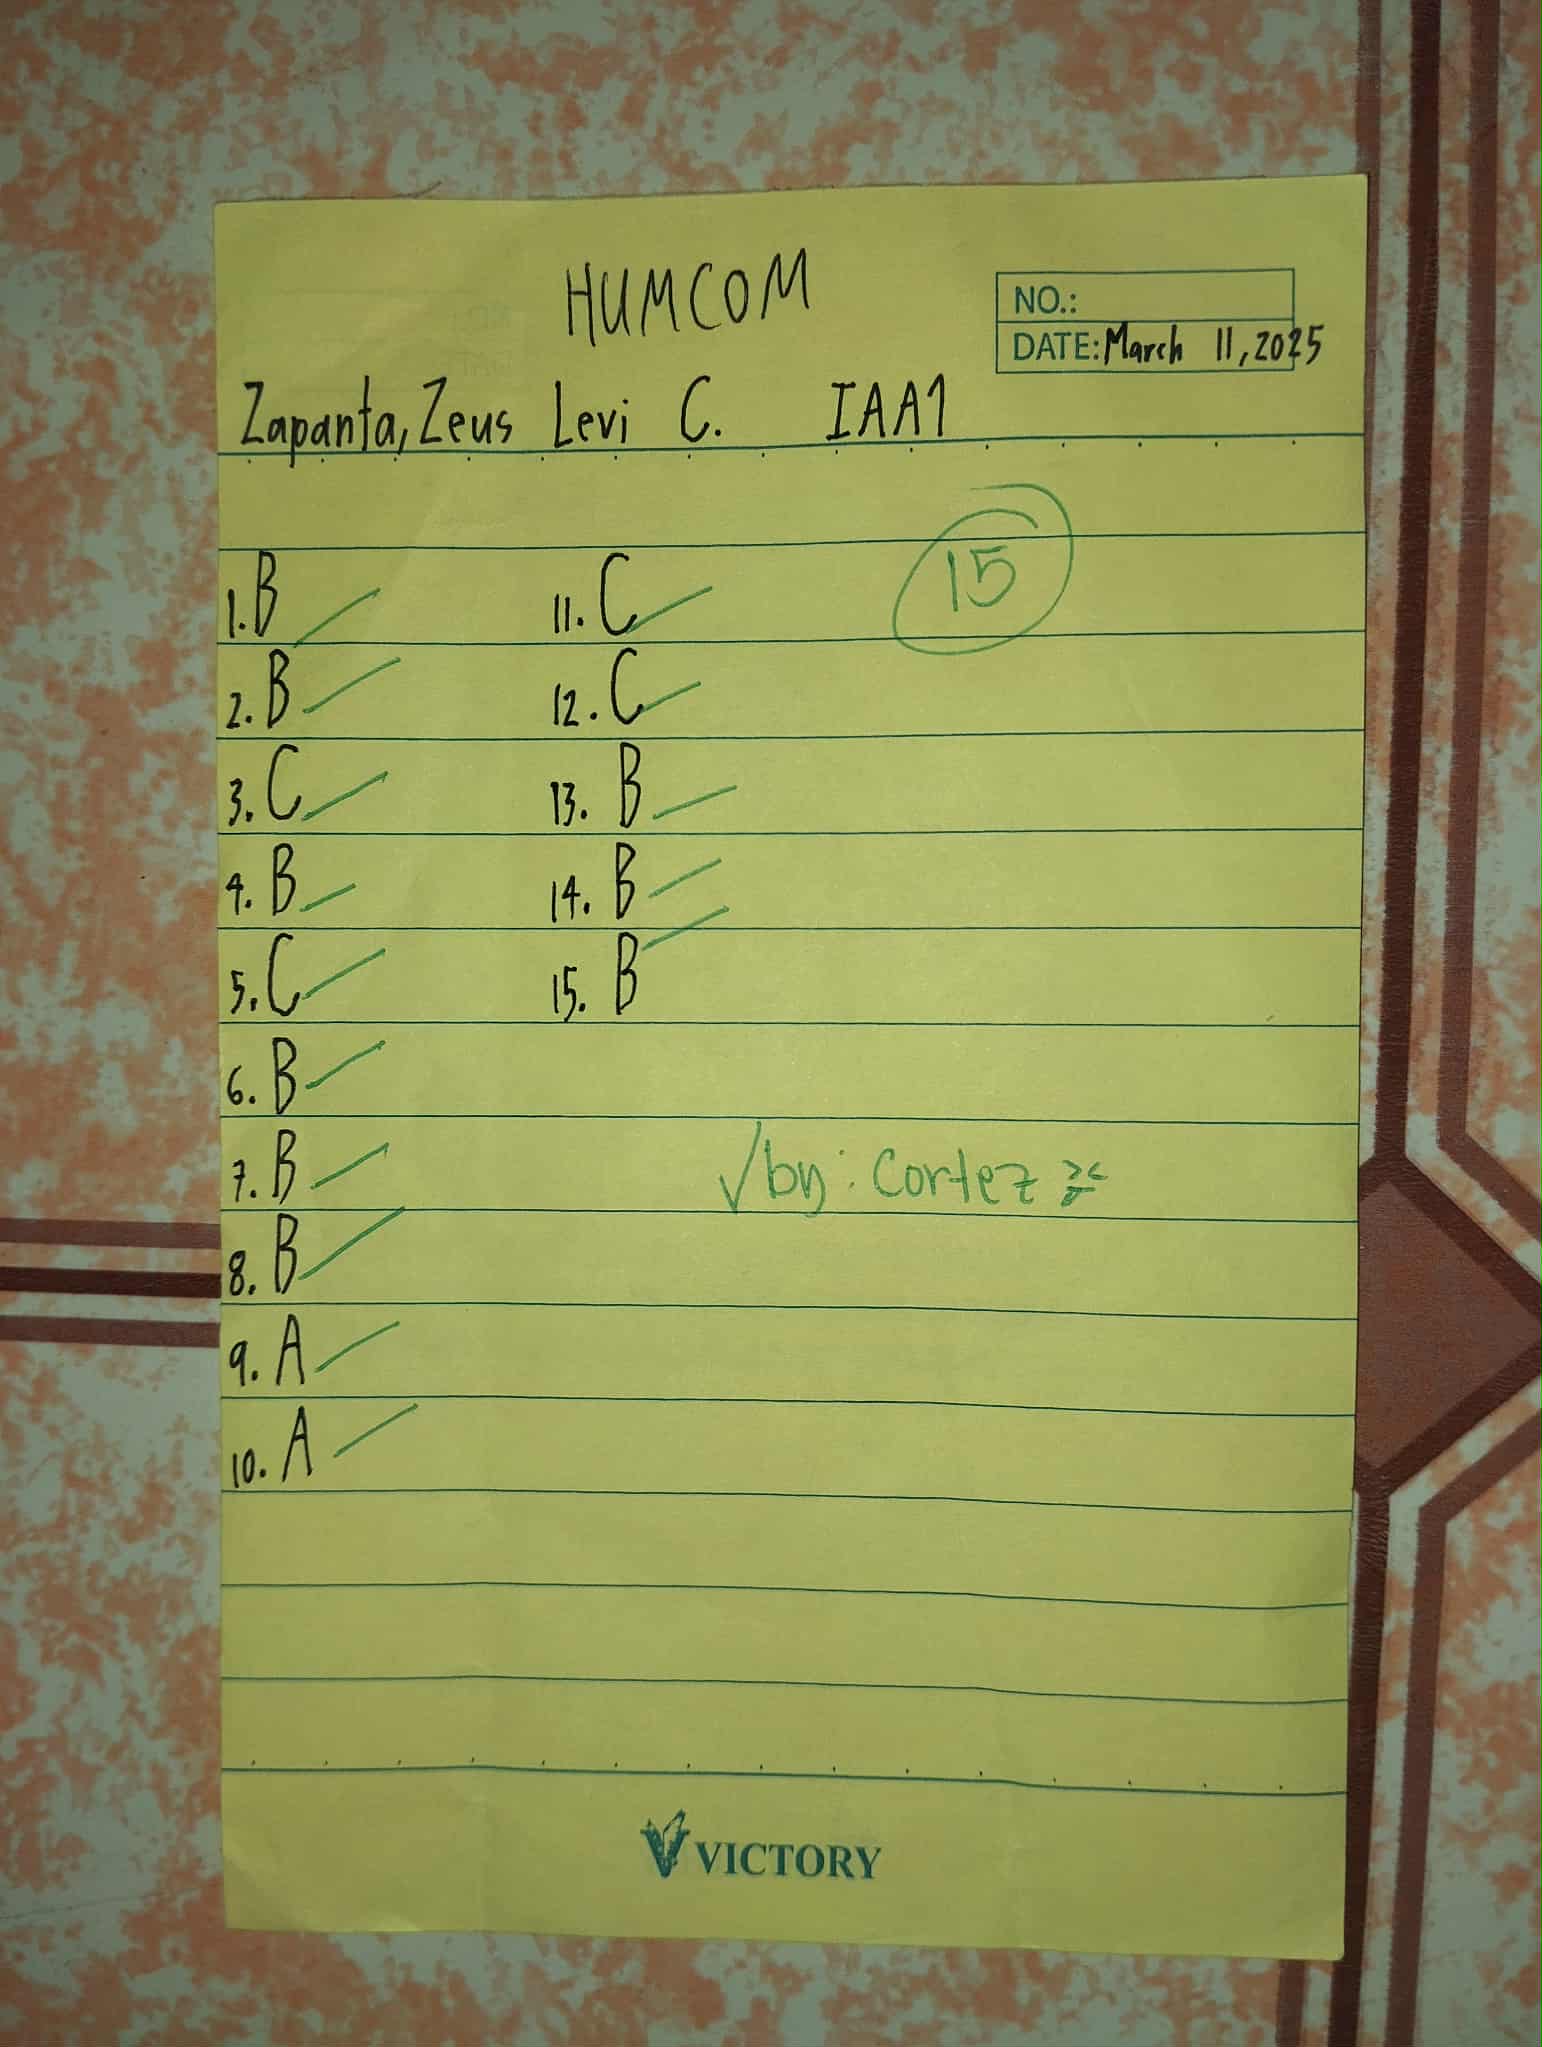 HUMCOM
NO.:
DATE: March 11, 2025
Zapanta, Zeus Levi C. IAA1
15
1. B
2. B
3. C
4. B
5. C
6. B
7. B
8. B
9. A
10. A
11. C
12. C
13. B
14. B
15. B
√by: Cortez
VICTORY